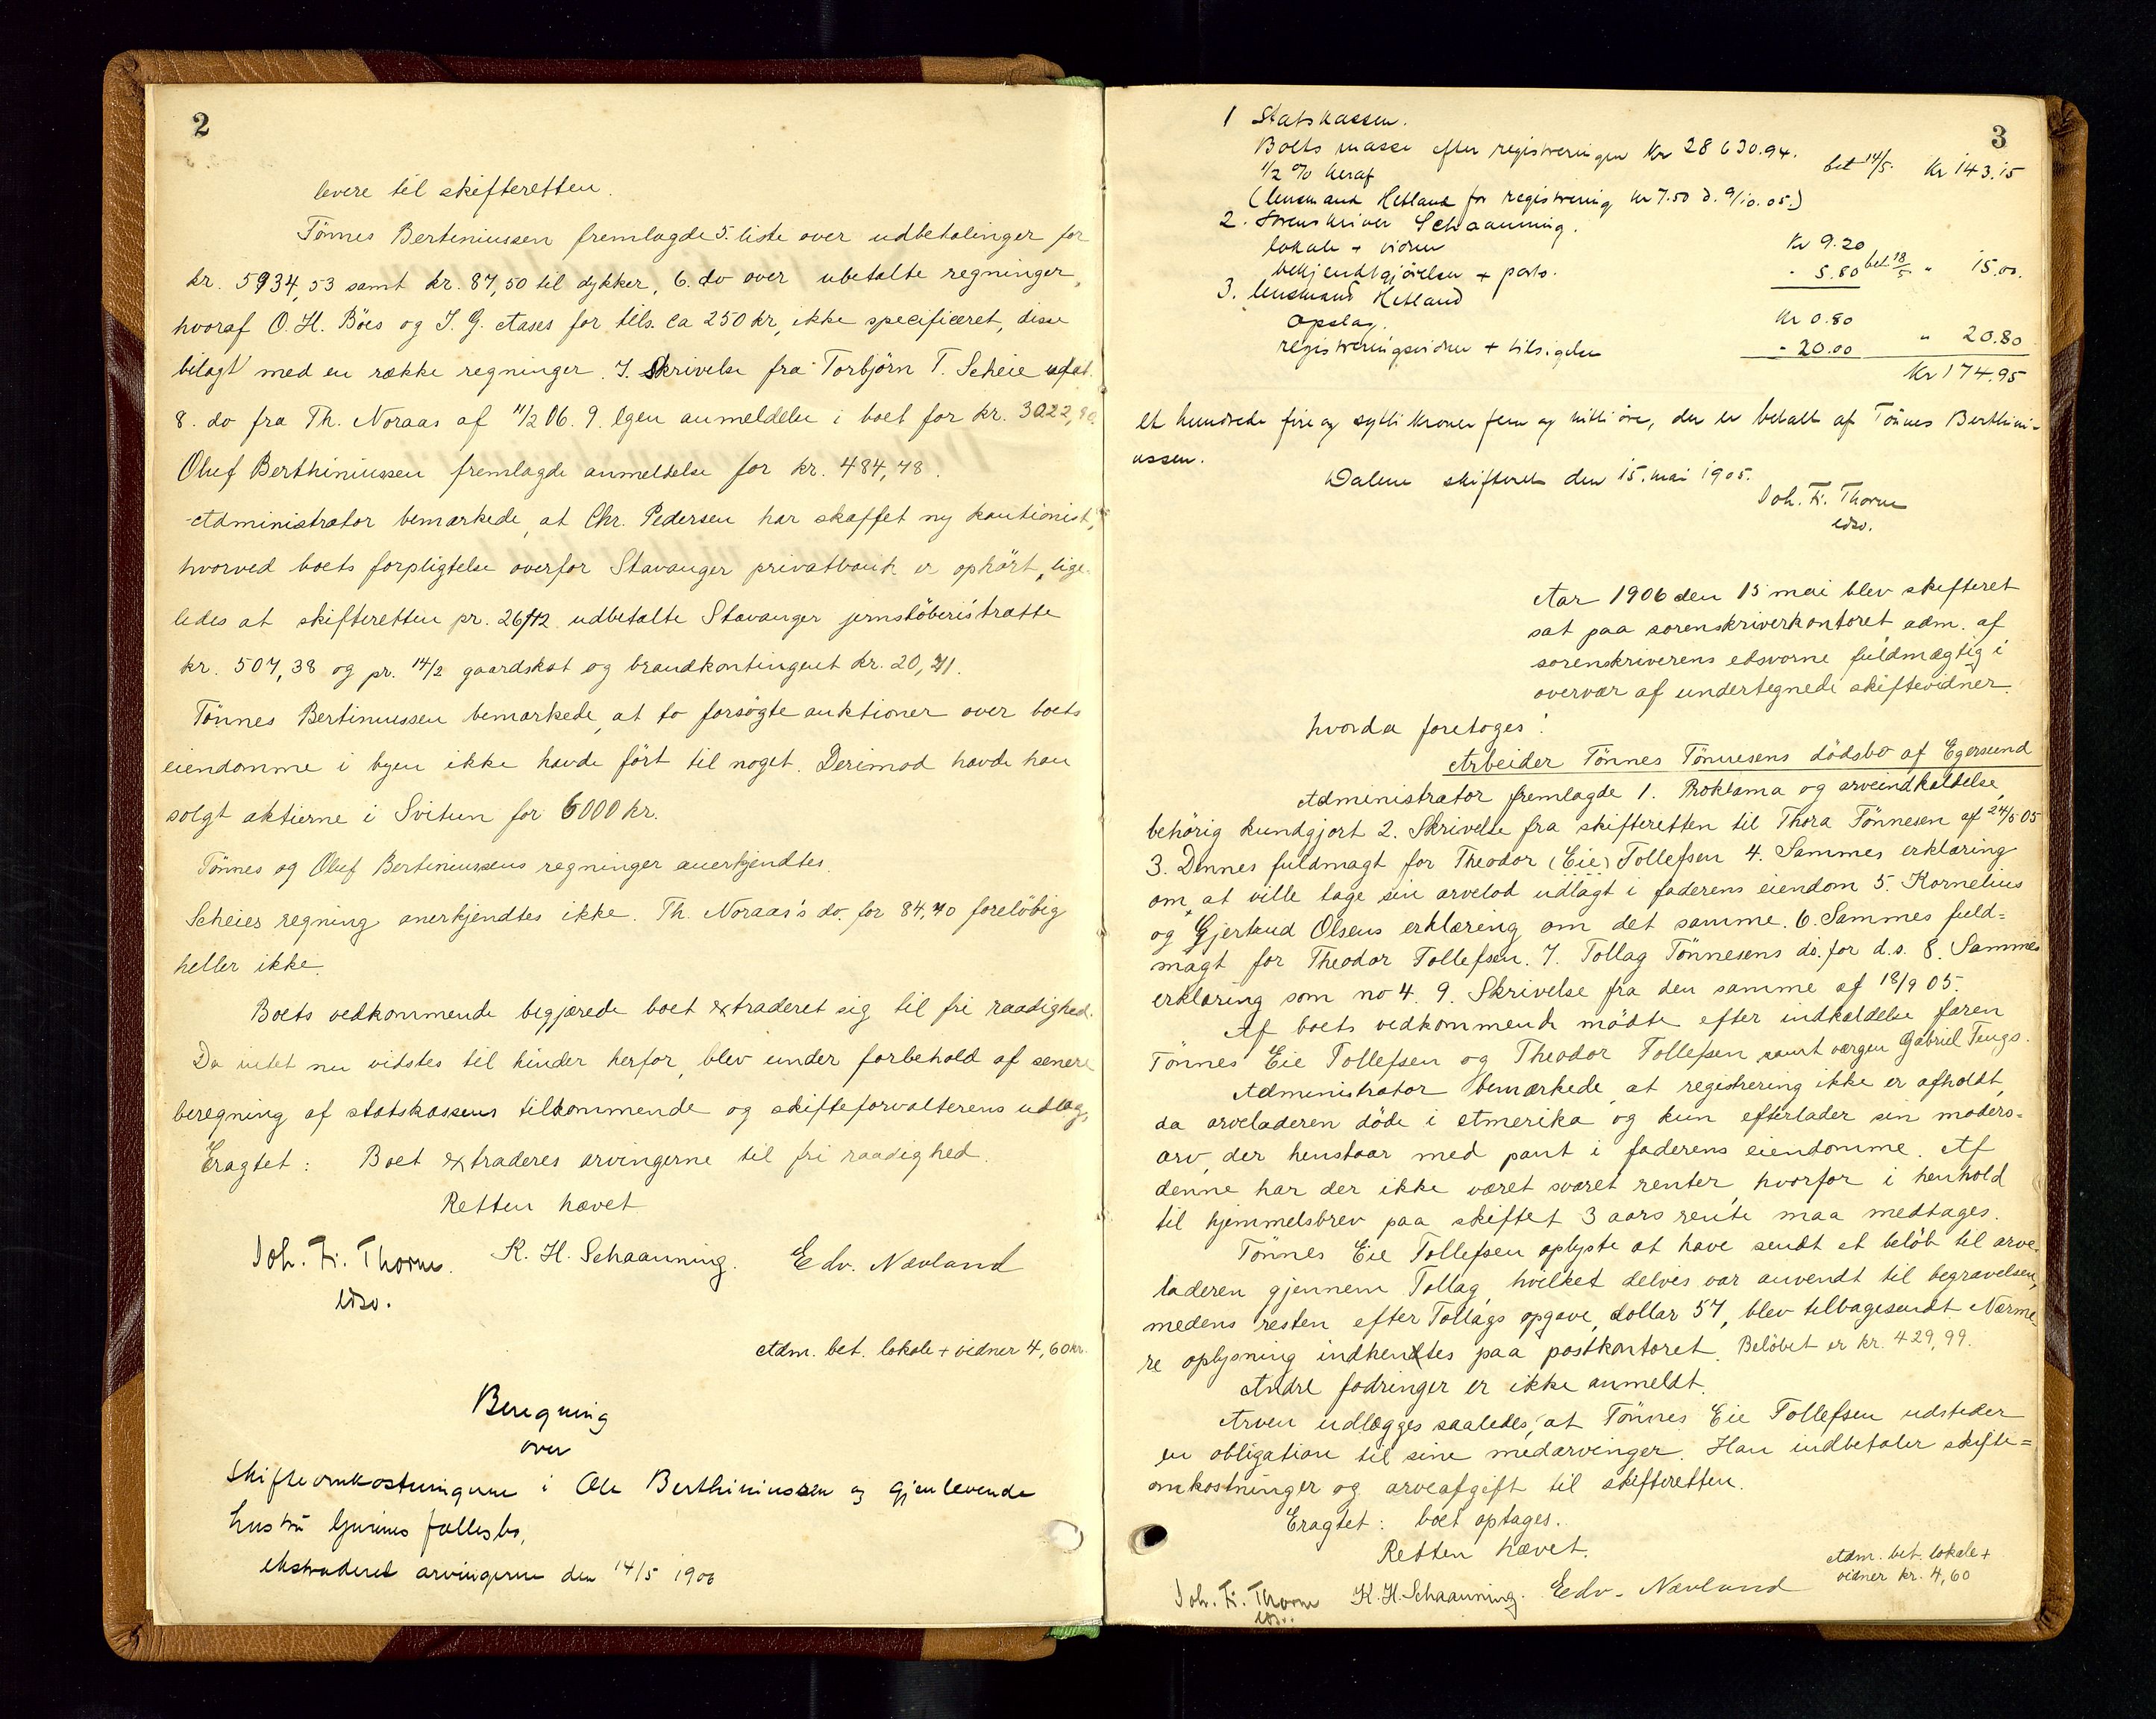 2
levere til skifteretten.
Tönnes Bertiniussen fremlagde 5. liste over udbetalinger for
kr. 5934,53 samt kr. 87,50 til dykker, 6. do over ubetalte regninger,
hvoraf O. H. Böes og J. G. Aases for tils. ca 250 kr, ikke specificeret, disse
bilagt med en række regninger. 7. Skrivelse fra Torbjörn T. Scheie udat.
8. do fra Th. Noraas af 11/2 06. 9. Egen anmeldelse i boet for kr. 3022,80.
Oluf Berthiniussen fremlagde anmeldelse for kr. 484,78.
Administrator bemærkede, at Chr. Pedersen har skaffet ny kautionist,
hvorved boets forpligtelse overfor Stavanger privatbank er ophört, lige-
ledes at skifteretten pr. 26/12 udbetalte Stavanger jernstöberis tratte
kr. 507,38 og pr. 14/2 gaardskat og brandkontingent kr. 20,71.
Tönnes Bertiniussen bemærkede, at to forsögte auktioner over boets
eiendomme i byen ikke havde fört til noget. Derimod havde han
solgt aktierne i Svitun for 6000 kr.
Tönnes og Oluf Bertiniussens regninger anerkjendtes.
Scheies regning anerkjendtes ikke. Th. Noraas's do. for 84,70 forelöbig
heller ikke.
Boets vedkommende begjærede boet extraderet sig til fri raadighed.
Da intet nu vidstes til hinder herfor, blev under forbehold af senere
beregning af statskassens tilkommende og skifteforvalterens udlæg,
Eragtet: Boet extraderes arvingerne til fri raadighed.
Retten hævet
Joh. Fr. Thorne. K. H. Schaanning. Edv. Nævland
edsv.
Adm. bet. lokale + vidner 4,60 kr.
Beregning
over
Skifteomkostningerne i Ole Berthiniussen og gjenlevende
hustru Gurines fællesbo,
ekstraderet arvingerne den 14/5 1906
3
1 Statskassen.
Boets masse efter registreringen Kr 28630.94.
1/2 % heraf bet 14/5. Kr 143.15
(lensmand Hetland for registrering kr 7.50 d. 9/10.05.)
2. Sorenskriver Schaanning.
lokale + vidner Kr 9.20
bekjendtgjörelsen + porto. - 5.80 bet 18/5 " 15.00.
3. lensmand Hetland
Opslag. Kr 0.80
registreringsvidner + tilsigelse - 20.00 " 20.80
Kr 174.95
et hundrede fire og sytti kroner fem og nitti öre, der er betalt af Tönnes Berthini-
ussen.
Dalene skifteret den 15. mai 1905.
Joh. Fr. Thorne
edsv.
Aar 1906 den 15 mai blev skifteret
sat paa sorenskriverkontoret adm. af
sorenskriverens edsvorne fuldmægtig i
overvær af undertegnede skiftevidner.
hvorda foretoges:
Arbeider Tönnes Tönnesens dödsbo af Egersund
Administrator fremlagde 1. Proklama og arveindkaldelse,
behörig kundgjort 2. Skrivelse fra skifteretten til Thora Tönnesen af 24/5 05
3. Dennes fuldmagt for Theodor (Eie) Tollefsen 4. Sammes erklæring
om at ville tage sin arvelod udlagt i faderens eiendom 5. Kornelius
og Gjertrud Olsens erklæring om det samme. 6. Sammes fuld=
magt for Theodor Tollefsen. 7. Tollag Tönnesens do. for d.s. 8. Sammes
erklæring som no 4. 9. Skrivelse fra den samme af 18/9 05.
Af boets vedkommende mödte efter indkaldelse faren
Tönnes Eie Tollefsen og Theodor Tollefsen samt værgen Gabriel Tengs.
Administrator bemærkede, at registrering ikke er afholdt,
da arveladeren döde i Amerika og kun efterlader sin mödre=
arv, der henstaar med pant i faderens eiendomme. Af
denne har der ikke været svaret renter, hvorfor i henhold
til hjemmelsbrev paa skiftet 3 aars rente maa medtages.
Tönnes Eie Tollefsen oplyste at have sendt et belöb til arve-
laderen gjennem Tollag, hvilket delvis var anvendt til begravelsen,
medens resten efter Tollags opgave, dollar 57, blev tilbagesendt. Nærme-
re oplysning indhentes paa postkontoret. Belöbet er kr. 429,99.
Andre fodringer er ikke anmeldt.
Arven udlægges saaledes, at Tönnes Eie Tollefsen udsteder
en obligation til sine medarvinger. Han indbetaler skifte=
omkostninger og arveafgift til skifteretten.
Eragtet: boet optages.
Retten hævet.
Adm. bet. lokale +
vidner kr. 4,60
Joh. Fr. Thorne K. H. Schaanning. Edv. Nævland
edsv.